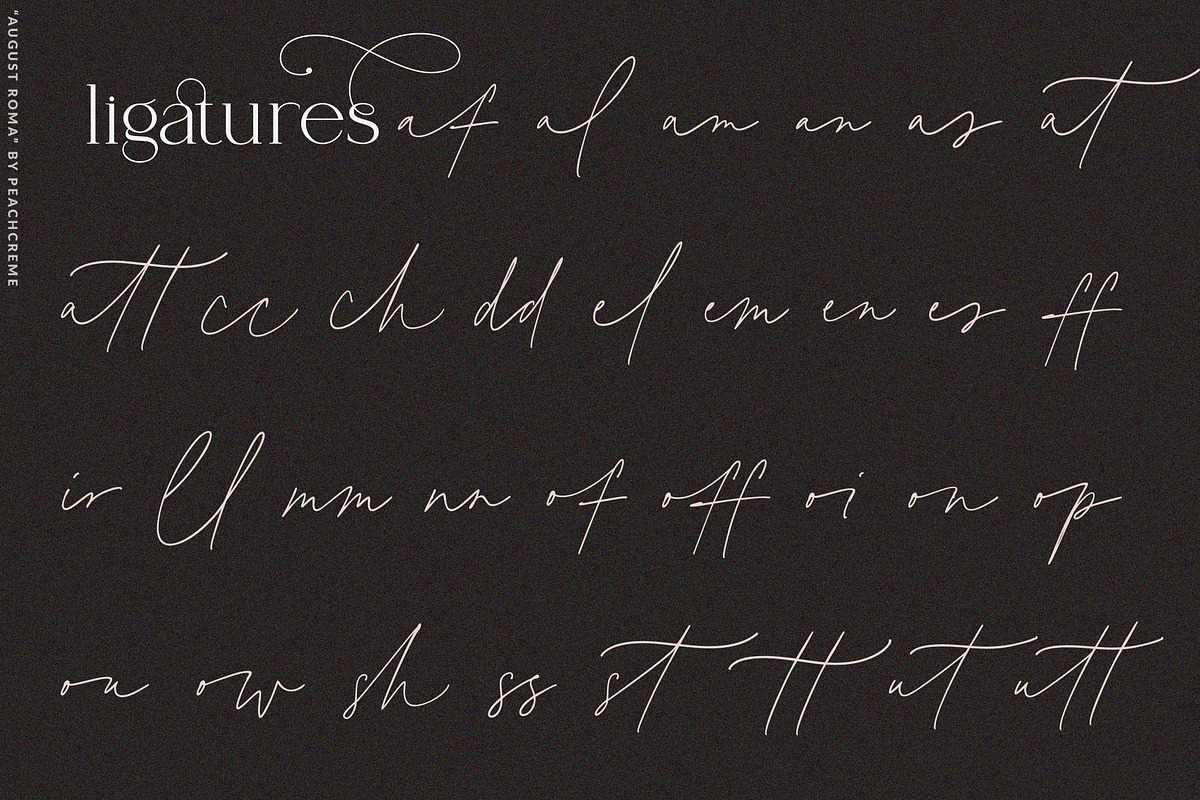 "AUGUST ROMA" BY PEACHCREME
ligatures af al am an as at
att cc ch dd el em en es ff
ir ll mm nn of off oi on op
ou ow sh ss st tt ut utt